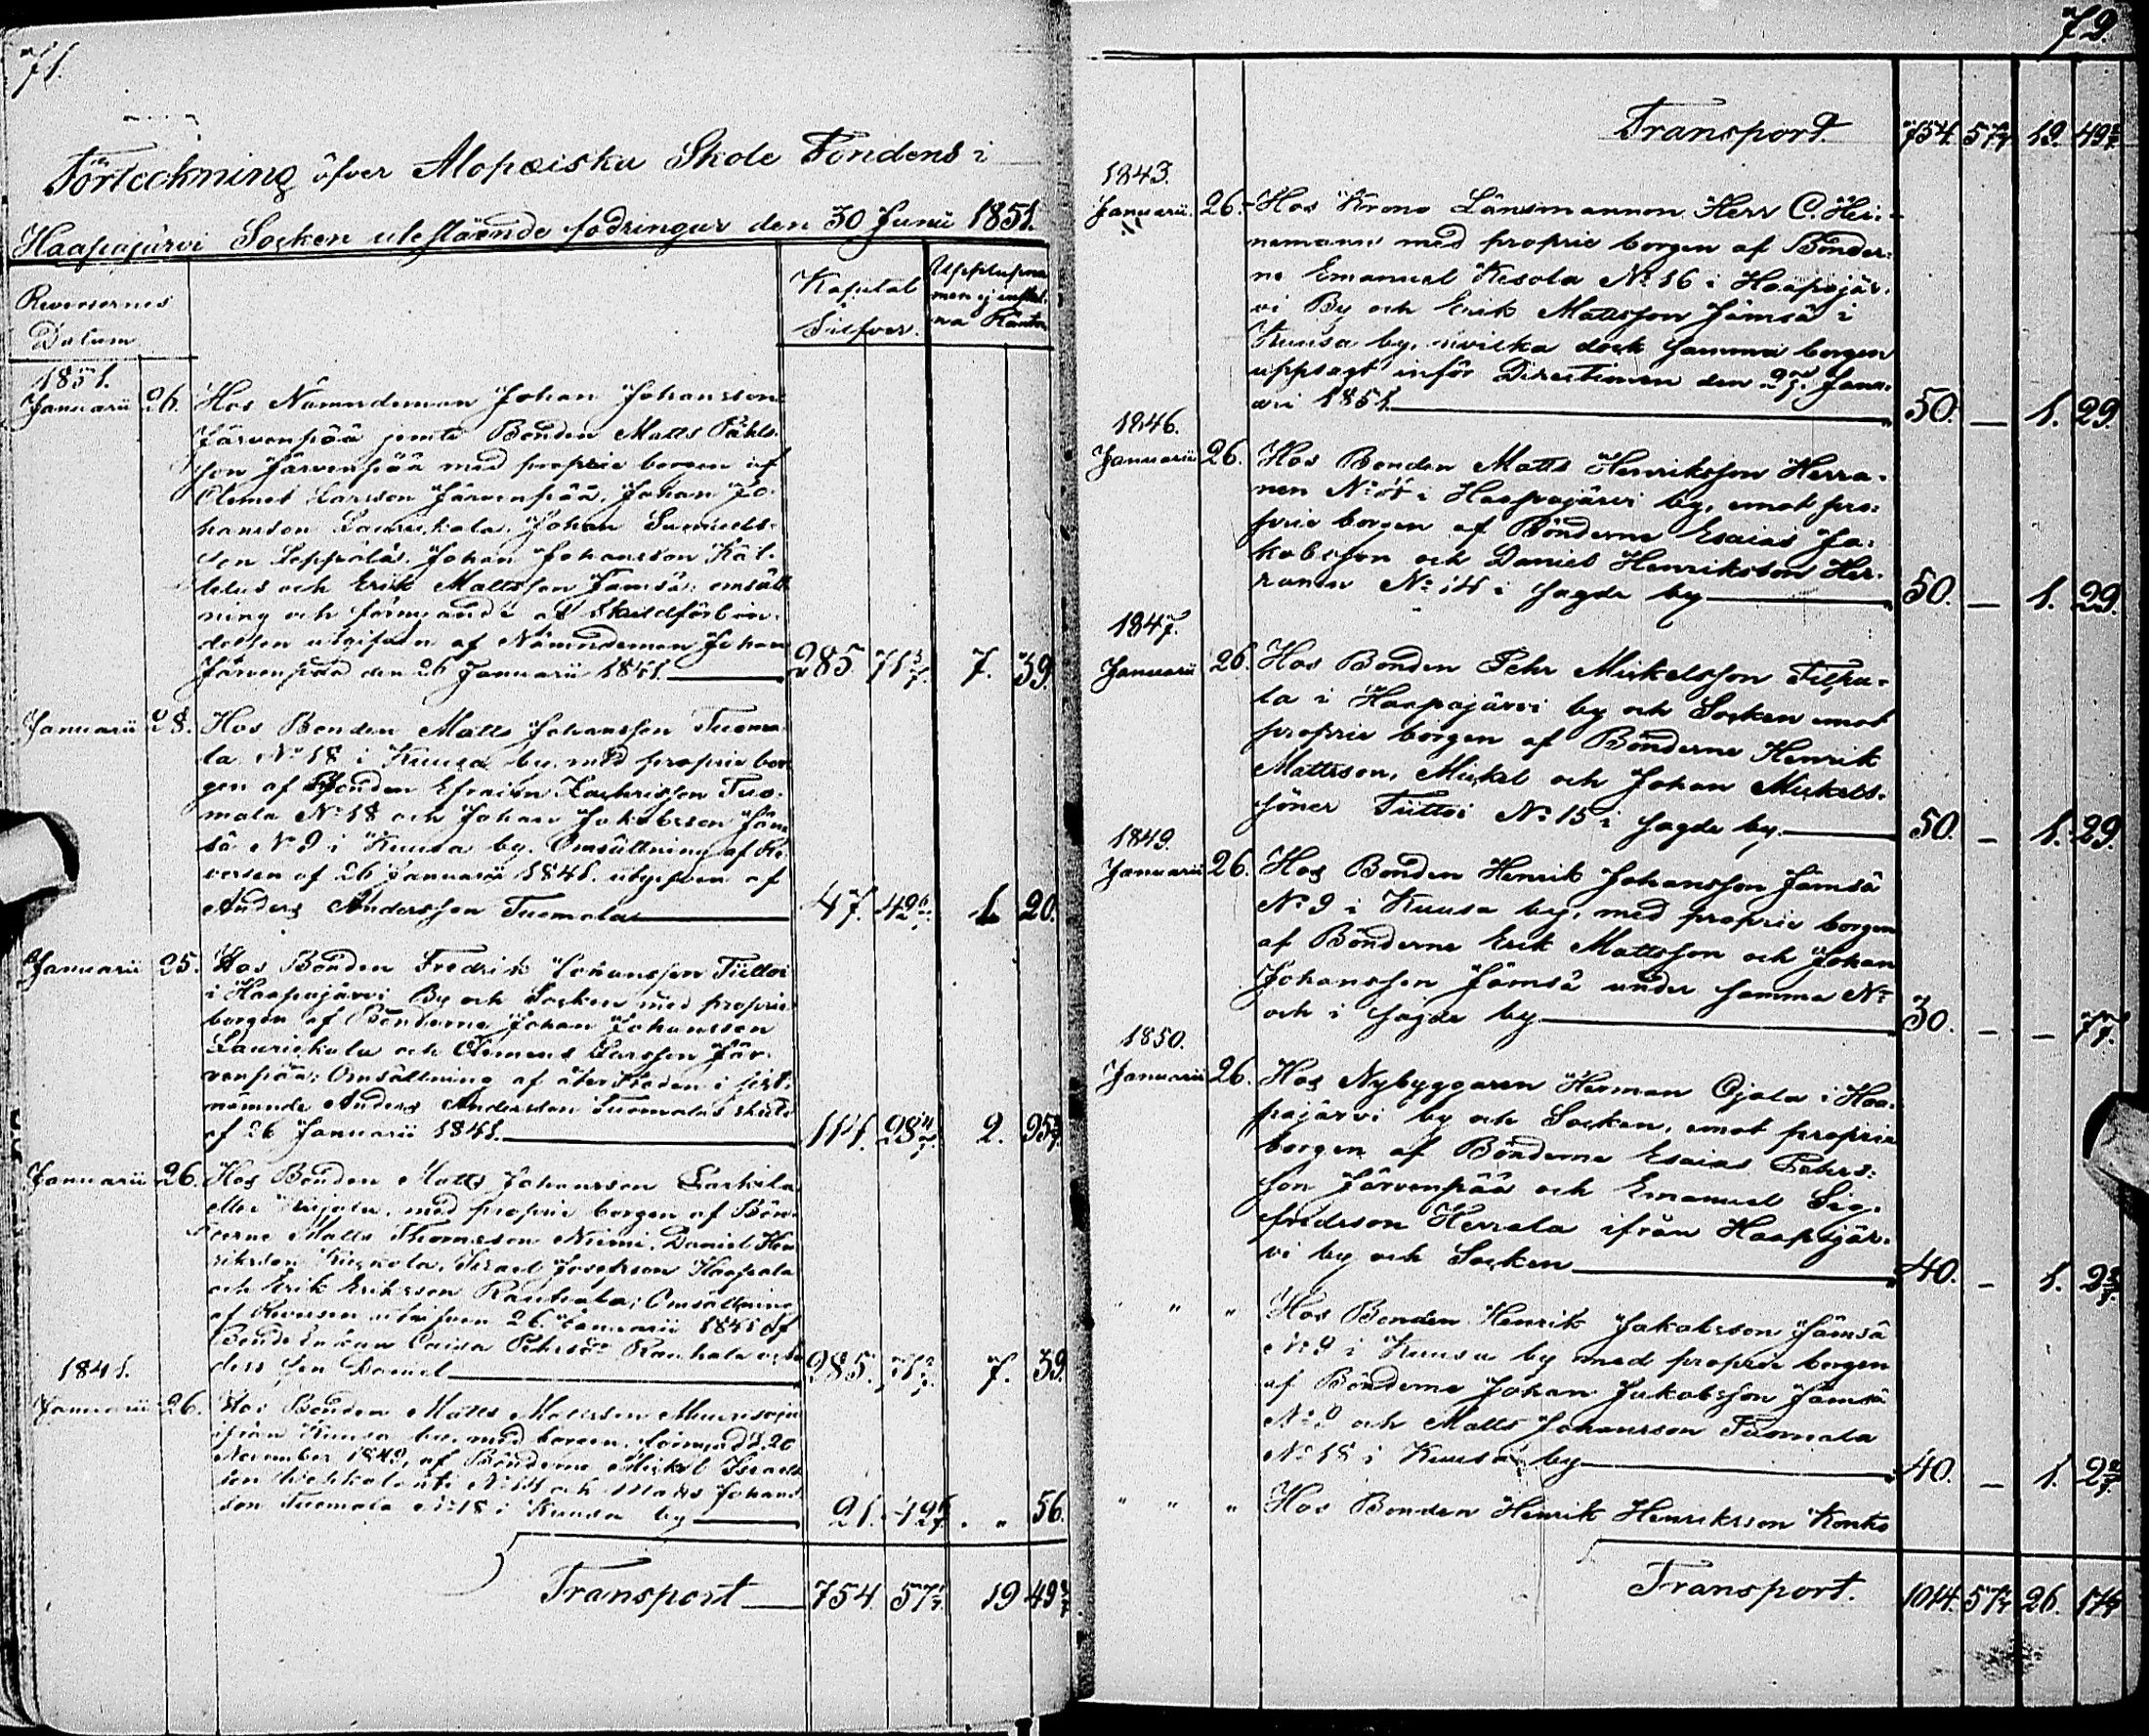 71.
Förteckning öfver Alopæiska Skole Fondens i
Haapajärvi Socken utestående fodringar den 30 Junii 1851.
Reversernes
Datum
Kapital
Silfver.
Upplupna
men ej influt-
na Räntor
1851.
Januarii 26. Hos Nämndeman Johan Johansson
Järvenpää jemte Bonden Matts Påhls-
son Järvenpää med proprie borgen af
Clemet Larsson Järvenpää, Johan Jo-
hansson Lauriekala, Johan Samuels-
son Leppälä, Johan Johansson Kat-
telus och Erik Mattsson Jämsä; omsätt-
ning och förnyande af Skuldförbin-
delsen utgifven af Nämndeman Johan
Järvenpää den 26 Januarii 1841. 285. 71 3/7. 7. 39.
Januarii 28. Hos Bonden Matts Johansson Tuoma-
la No 18 i Kuusa by, med proprie bor-
gen af Bonden Efraim Zachrisson Tuo-
mala No 18 och Johan Jakobsson Jäm-
sä No 9 i Kuusa by. Omsättning af Re-
versen af 26 Januarii 1841. utgifven af
Anders Andersson Tuomala 47. 42 6/7. 1. 20.
Januarii 25. Hos Bonden Fredrik Johansson Tiittoi
i Haapajärvi By och Socken med proprie
borgen af Bönderne Johan Johansson
Lauriekala och Clemens Larsson Jär-
venpää; Omsättning af återstoden i först-
nämnde Anders Andersson Tuomalas skuld
af 26 Januarii 1841. 114. 28 4/7. 2. 95 3/7.
Januarii 26. Hos Bonden Matts Johansson Larkela
eller med proprie borgen af Bön-
derne Matts Thomasson Niemi, Daniel Hen-
riksson Israel Josefsson Haapala
och Erik Eriksson Rauhala; Omsättning
af Reversen utgifven 26 Januarii 1841 af
Bonde Enkan Caisa Pehrsdr Rauhala och
dess son Daniel 285. 71 3/7. 7. 39.
1841.
Januarii 26. Hos Bonden Matts Mattsson
ifrån Kuusa by, med borgen, förnyad d. 20
November 1849, af Bönderne Mickel Israels-
son No 14 och Matts Johans-
son Tuomala No 18 i Kuusa by 21. 42 6/7. " 56.
Transport 754. 57 1/7. 19 49 3/7
72.
Transport. 754. 57 1/7. 19. 49 3/7
1843.
Januarii. 26. Hos Krono Länsmannen Herr C. Hei-
nemann med proprie borgen af Bönder-
ne Emanuel Kesola No 16 i Haapajär-
vi By och Erik Mattsson Jämsä i
Kuusa by, hvilka dock samma borgen
uppsagt inför Direktionen den 27 Janu-
ari 1851. 50. — 1. 29.
1846.
Januarii 26. Hos Bonden Matts Henriksson Herra-
nen No i Haapajärvi by, emot pro-
prie borgen af Bönderne Esaias Ja-
kobsson och Daniel Henriksson Her-
ranen No 14 i sagde by 50. — 1. 29.
1847.
Januarii 26. Hos Bonden Pehr Mickelsson Tilpa-
la i Haapajärvi by och Socken emot
proprie borgen af Bönderne Henrik
Mattsson, Mickel och Johan Mickels-
söner Tiittoi No 15 i sagde by. 50. — 1. 29.
1849.
Januarii 26. Hos Bonden Henrik Johansson Jämsä
No 9 i Kuusa by, med proprie borgen
af Bönderne Erik Mattsson och Johan
Johansson Jämsä under samma No
och i sagde by 30. — — 77.
1850.
Januarii 26. Hos Nybyggaren Herman Ojala i Haa-
pajärvi by och Socken, emot proprie
borgen af Bönderne Esaias Pehrs-
son Järvenpää och Emanuel Sig-
fredsson Herrala ifrån Haapajär-
vi by och Socken 40. — 1. 2 2/7.
" " " Hos Bonden Henrik Jakobsson Jämsä
No 9 i Kuusa by med proprie borgen
af Bönderne Johan Jakobsson Jämsä
No 9 och Matts Johansson Tuomala
No 18 i Kuusa by 40. — 1. 2 2/7.
" " " Hos Bonden Henrik Henriksson Konko
Transport. 1014. 57 1/7 26. 17